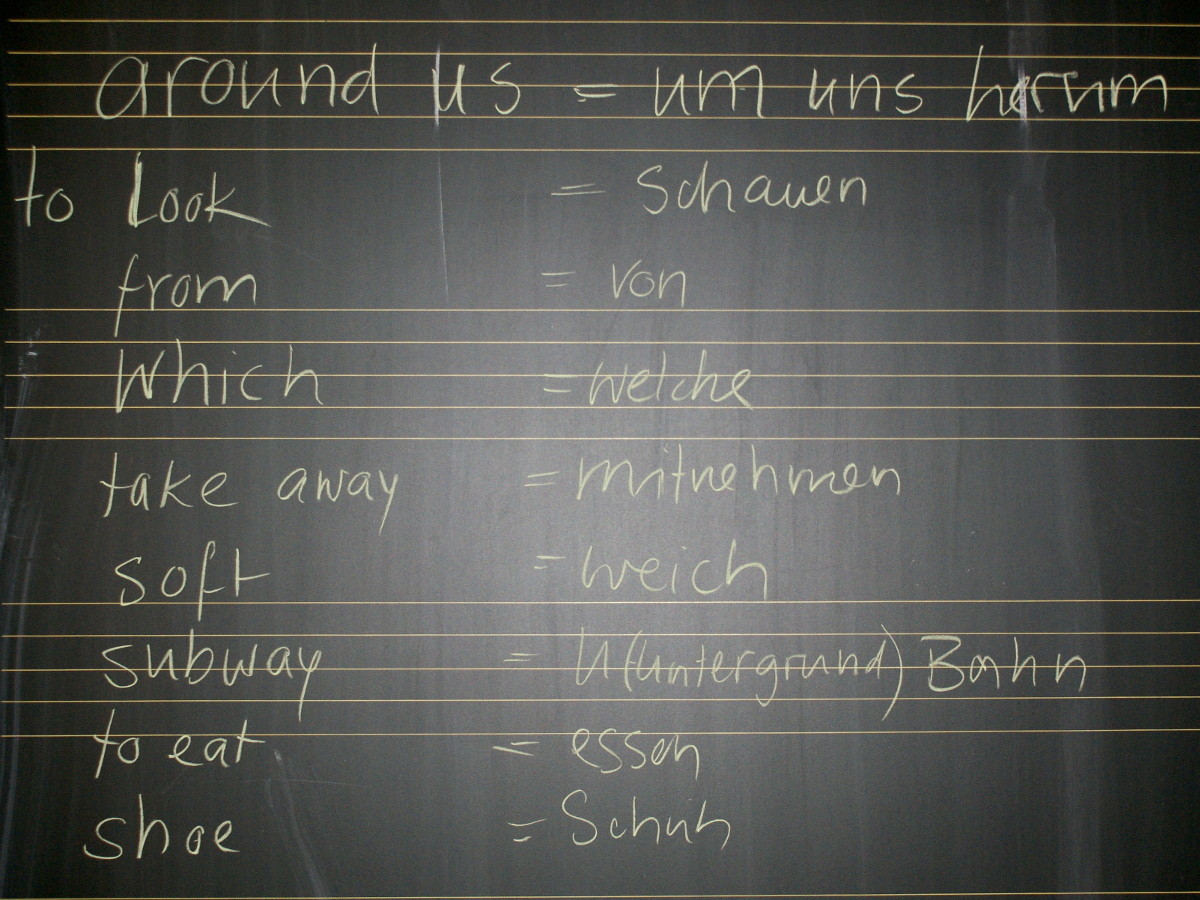 around us = um uns herum
to Look = schauen
from = von
Which = welche
take away = mitnehmen
soft = weich
subway = U(untergrund) Bahn
to eat = essen
shoe = Schuh